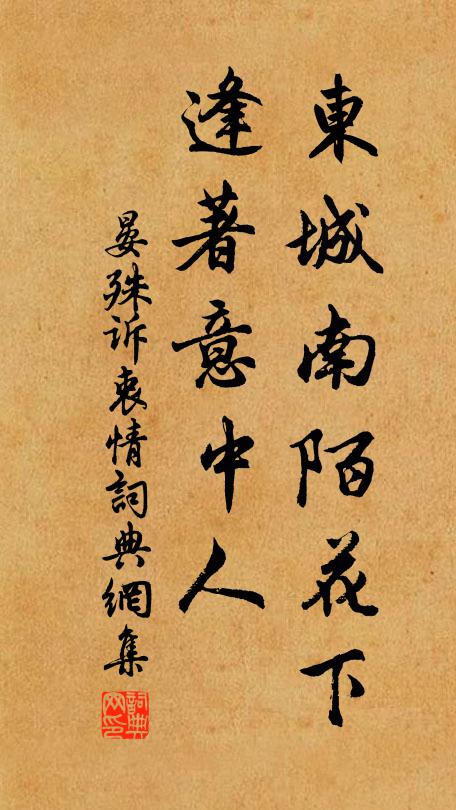 東城南陌花下
逢著意中人
晏殊訴衷情詞典網集
詞典网印